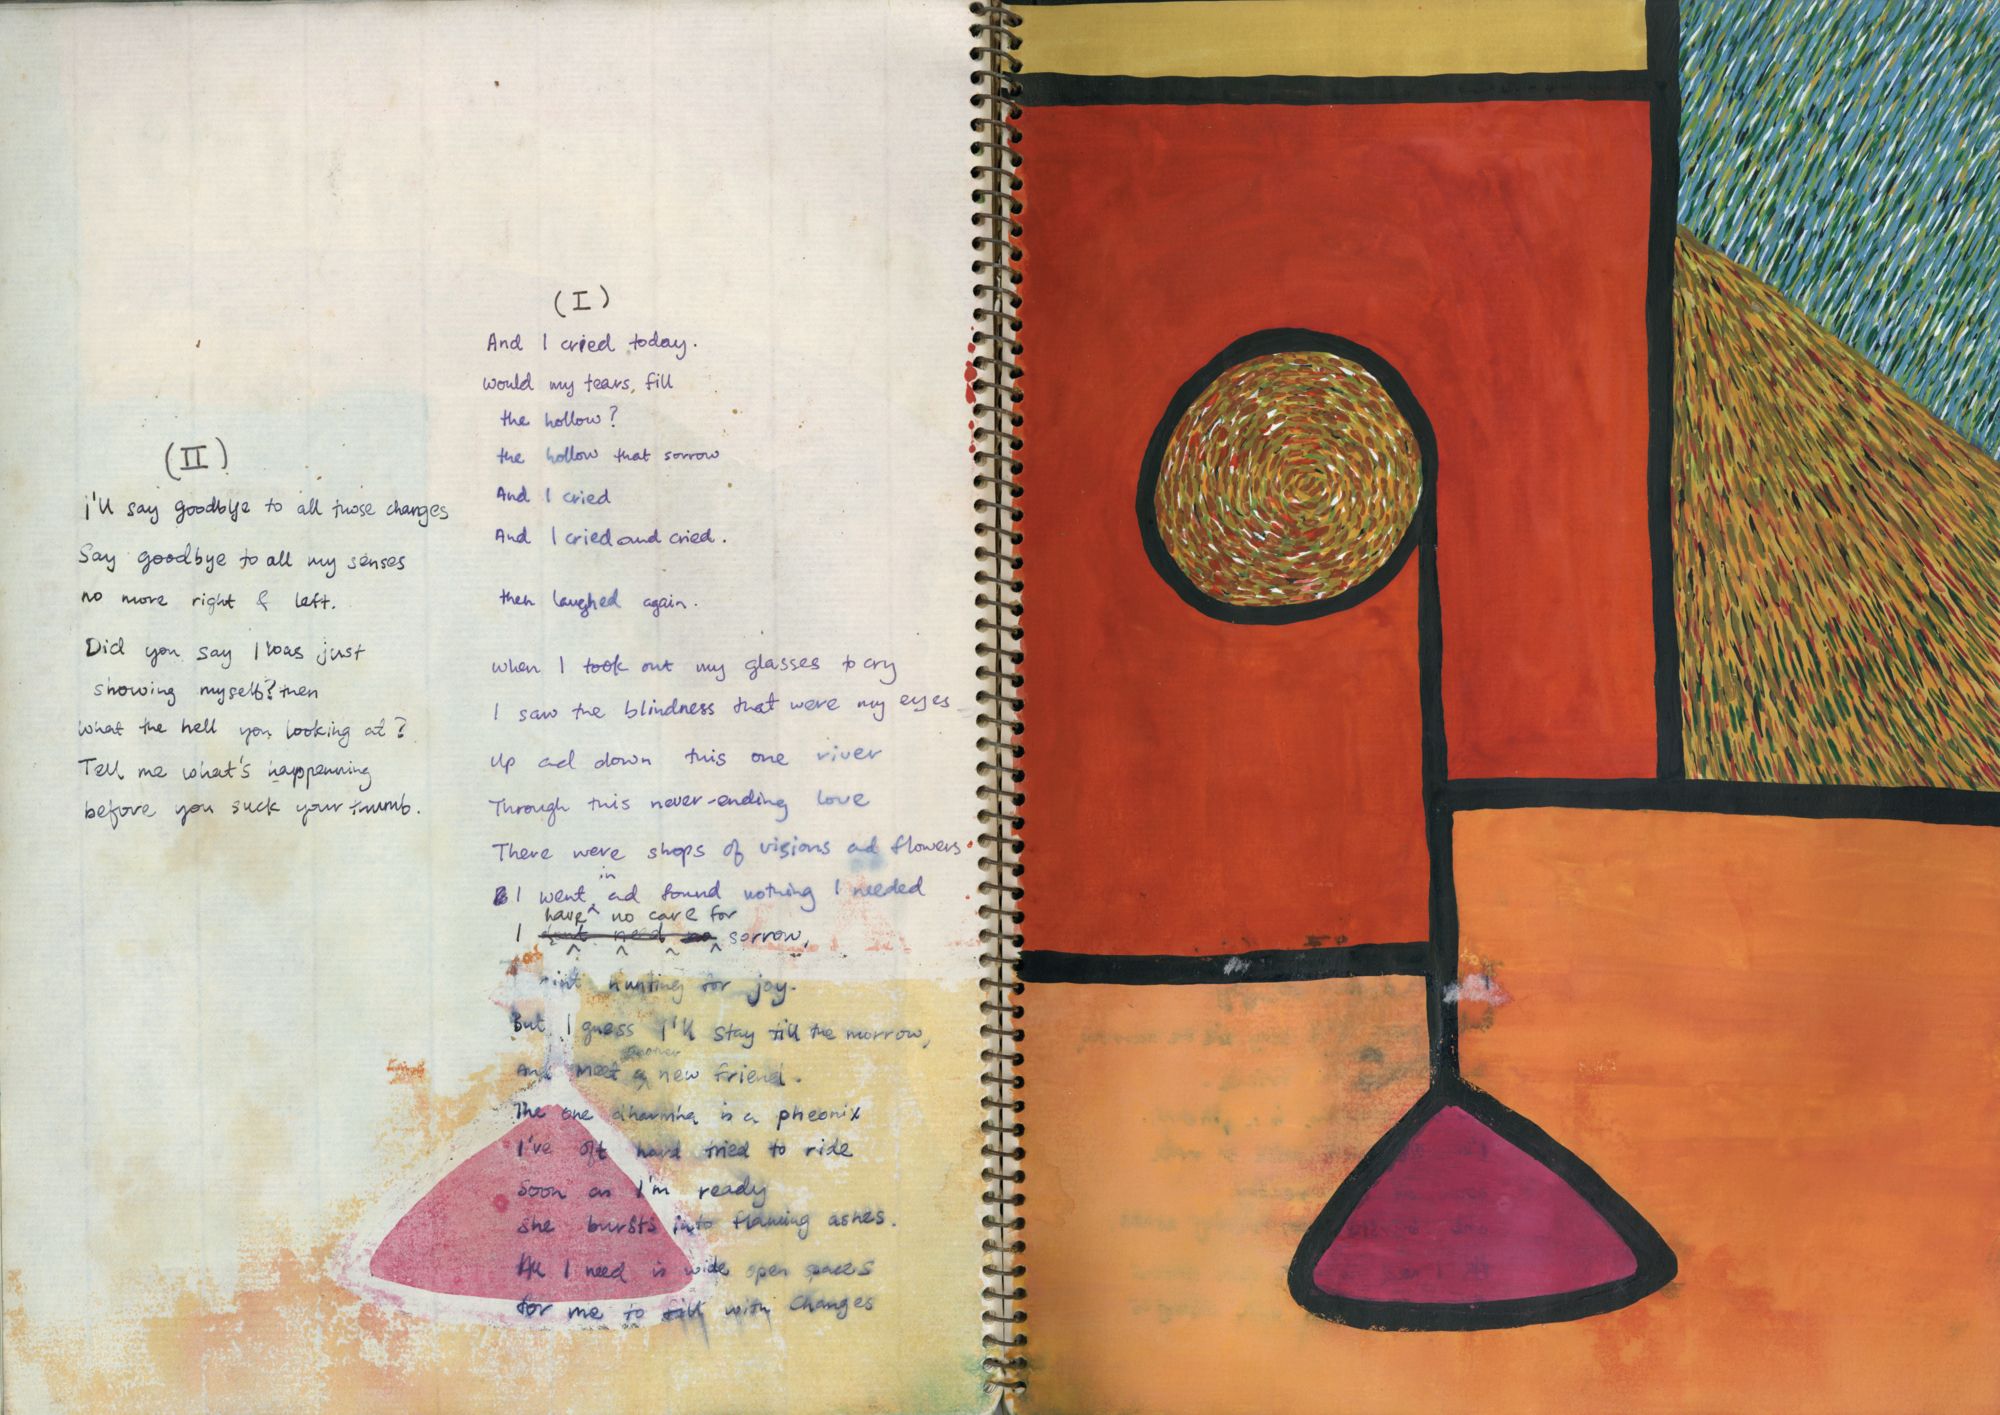 (I)
And I cried today.
would my tears, fill
the hollow?
the hollow that sorrow
And I cried
And I cried and cried.
then laughed again.
when I took out my glasses to cry
I saw the blindness that were my eyes
Up ad down this one river
Through this never-ending love
There were shops of visions ad flowers
I went in ad found nothing I needed
I have no care for sorrow,
hunting for joy.
But I guess I'll stay till the morrow,
And meet a new friend.
The one is a pheonix
I've oft hard tried to ride
Soon as I'm ready
she bursts into flaming ashes.
All I need is wide open spaces
for me to fill with changes
(II)
I'll say goodbye to all those changes
Say goodbye to all my senses
no more right & left.
Did you say I was just
showing myself? then
what the hell you looking at?
Tell me what's happenning
before you suck your thumb.